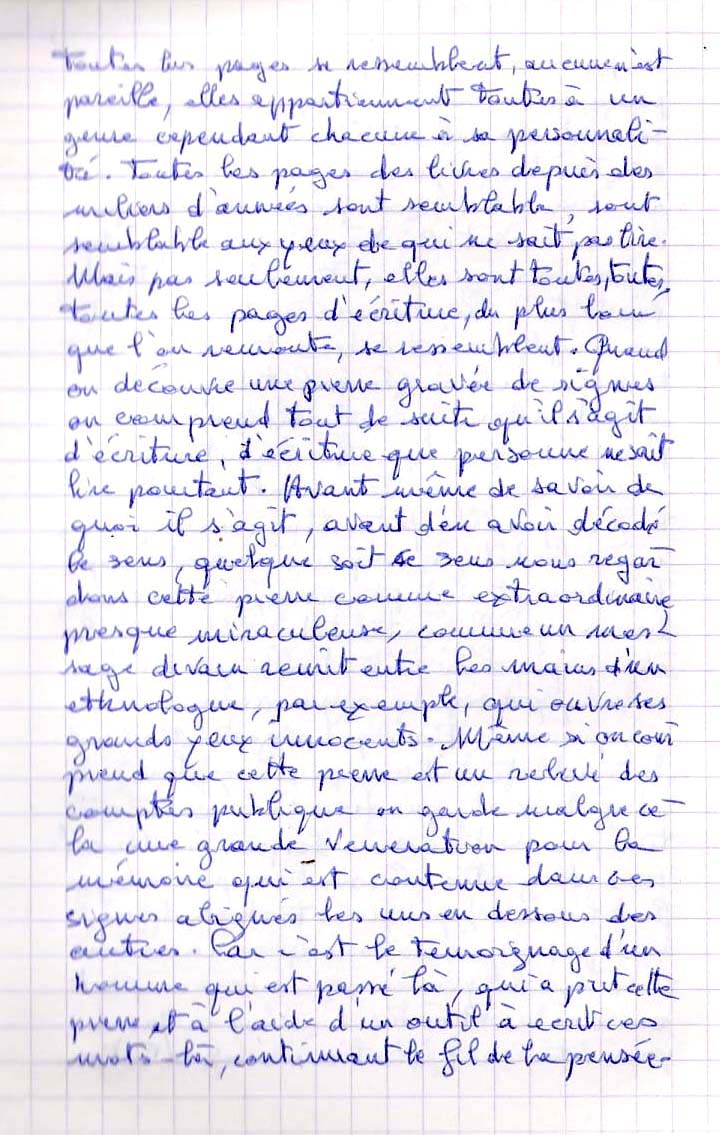 Toutes les pages se ressemblent, aucune n'est
pareille, elles appartiennent toutes à un
genre cependant chacune à sa personnali-
té. Toutes les pages des livres depuis des
milliers d'années sont semblable, sont
semblable aux yeux de qui ne sait pas lire.
Mais pas seulement, elles sont toutes, toutes,
toutes les pages d'écriture, du plus loin
que l'on remonte, se ressemblent. Quand
on découvre une pierre gravée de signes
on comprend tout de suite qu'il s'agit
d'écriture, d'écriture que personne ne sait
lire pourtant. Avant même de savoir de
quoi il s'agit, avant d'en avoir décodé
le sens, quelque soit le sens nous regar-
dons cette pierre comme extraordinaire
presque miraculeuse, comme un mes-
sage divain remit entre les mains d'un
ethnologue, par exemple, qui ouvre ses
grands yeux innocents. Même si on com-
prend que cette pierre est un relevé des
comptes publique on garde malgré ce-
la une grande veneration pour la
mémoire qui est contenue dans ces
signes alignés les uns en dessous des
autres. Car c'est le temoignage d'un
homme qui est passé là, qui a prit cette
pierre et à l'aide d'un outil à ecrit ces
mots-là, continuant le fil de la pensée